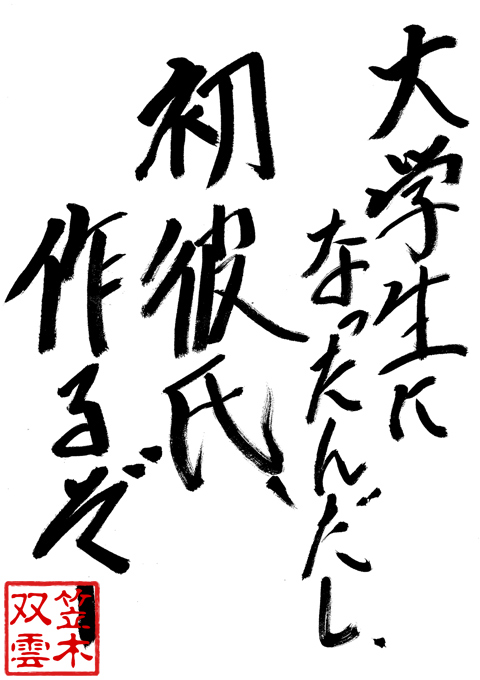 大学生に
なったんだし、
初彼氏、
作るぞ
笠木
双雲